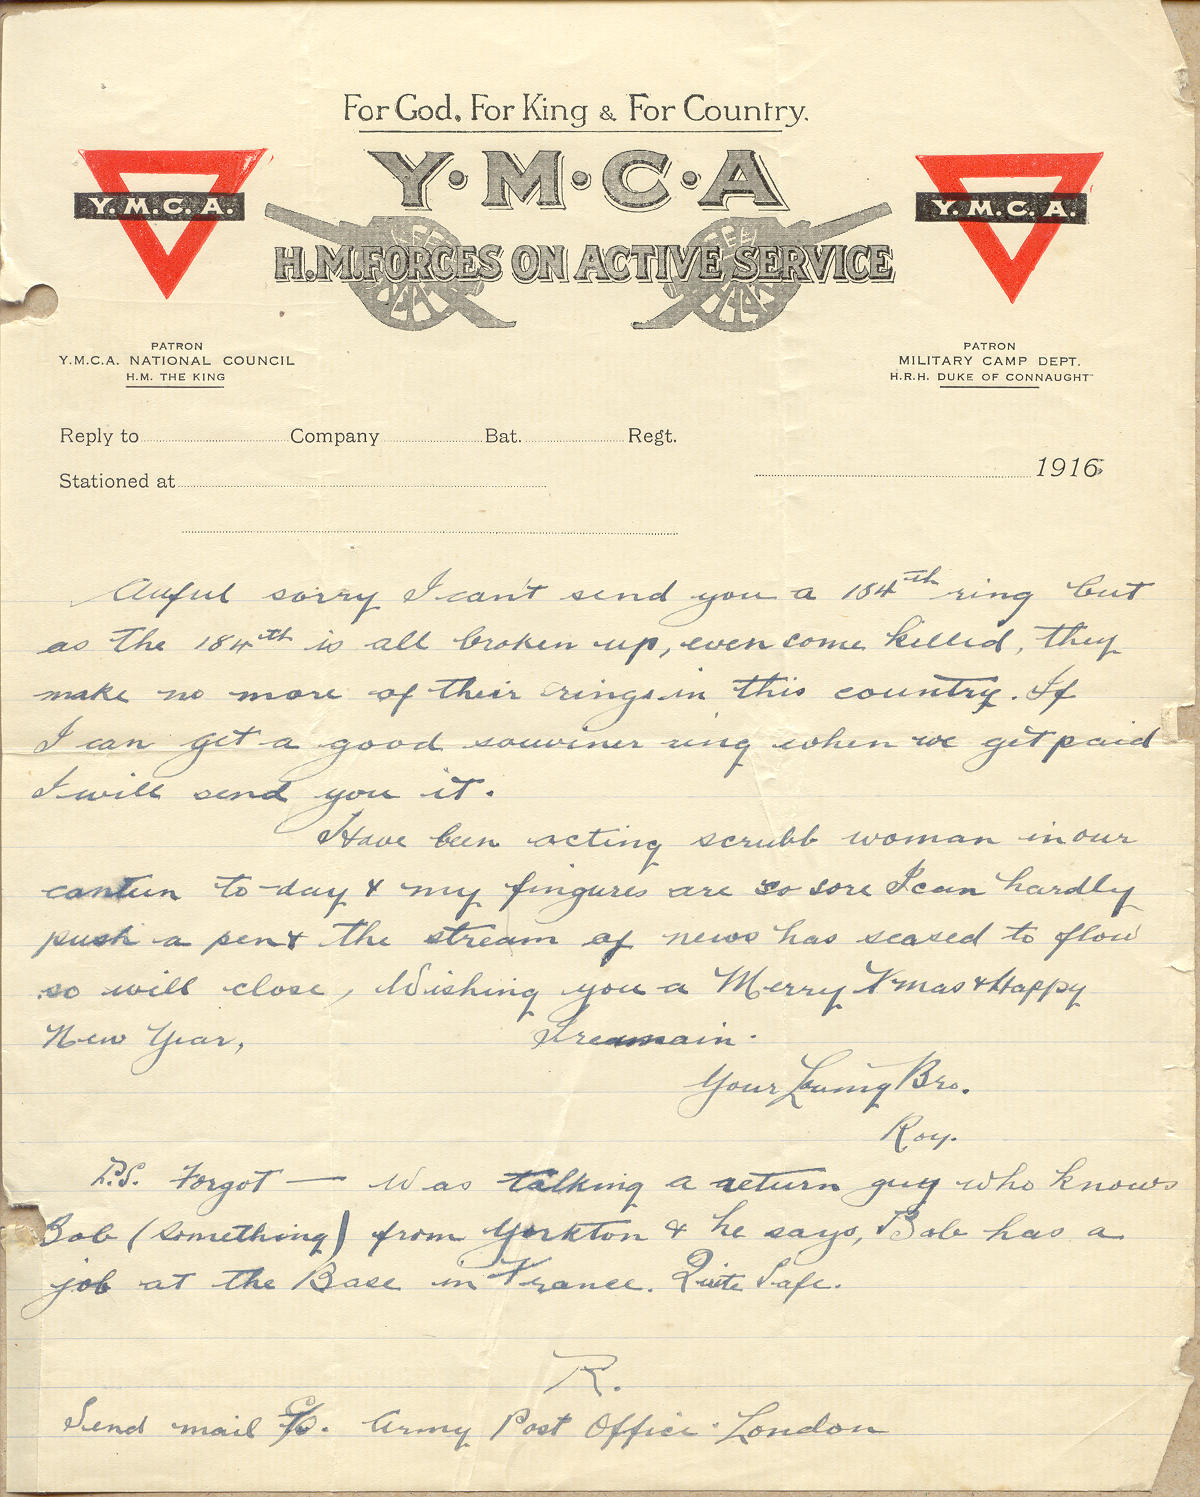 For God, For King & For Country.
Y·M·C·A
Y. M. C. A.
Y. M. C. A.
H.M. FORCES ON ACTIVE SERVICE
PATRON
Y.M.C.A. NATIONAL COUNCIL
H.M. THE KING
PATRON
MILITARY CAMP DEPT.
H.R.H. DUKE OF CONNAUGHT
Reply to Company Bat. Regt.
Stationed at
1916
Awful sorry I can't send you a 184th ring but
as the 184th is all broken up, even some killed, they
make no more of their rings in this country. If
I can get a good souviner ring when we get paid
I will send you it.
Have been acting scrubb woman in our
canteen to-day & my fingures are so sore I can hardly
push a pen & the stream of news has seased to flow
so will close, Wishing you a Merry Xmas & Happy
New Year, I remain.
Your Loving Bro.
Roy.
P.S. Forgot — Was talking a return guy who knows
Bob (something) from Yorkton & he says, Bob has a
job at the Base in France. Quite Safe.
R.
Send mail c/o. Army Post Office. London